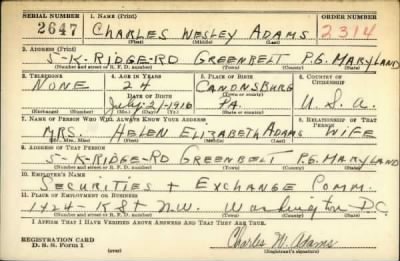 SERIAL NUMBER 1. NAME (Print) ORDER NUMBER
2647 CHARLES WESLEY ADAMS 2314
(First) (Middle) (Last)
2. ADDRESS (Print)
5-K-RIDGE-RD GREENBELT P.G. MARYLAND
(Number and street or R. F. D. number) (Town) (County) (State)
3. TELEPHONE 4. AGE IN YEARS 5. PLACE OF BIRTH 6. COUNTRY OF CITIZENSHIP
NONE 24 CANONSBURG
DATE OF BIRTH (Town or county)
July-21-1916 PA. U.S.A.
(Exchange) (Number) (Mo.) (Day) (Yr.) (State or country)
7. NAME OF PERSON WHO WILL ALWAYS KNOW YOUR ADDRESS 8. RELATIONSHIP OF THAT PERSON
MRS. HELEN ELIZABETH ADAMS WIFE
(Mr., Mrs., Miss) (First) (Middle) (Last)
9. ADDRESS OF THAT PERSON
5-K-RIDGE-RD GREENBELT P.G. MARYLAND
(Number and street or R. F. D. number) (Town) (County) (State)
10. EMPLOYER'S NAME
SECURITIES + EXCHANGE COMM.
11. PLACE OF EMPLOYMENT OR BUSINESS
1424-K St N.W. Washington D.C.
(Number and street or R. F. D. number) (Town) (County) (State)
I AFFIRM THAT I HAVE VERIFIED ABOVE ANSWERS AND THAT THEY ARE TRUE.
REGISTRATION CARD
D. S. S. Form 1
Charles W. Adams
(Registrant's signature)